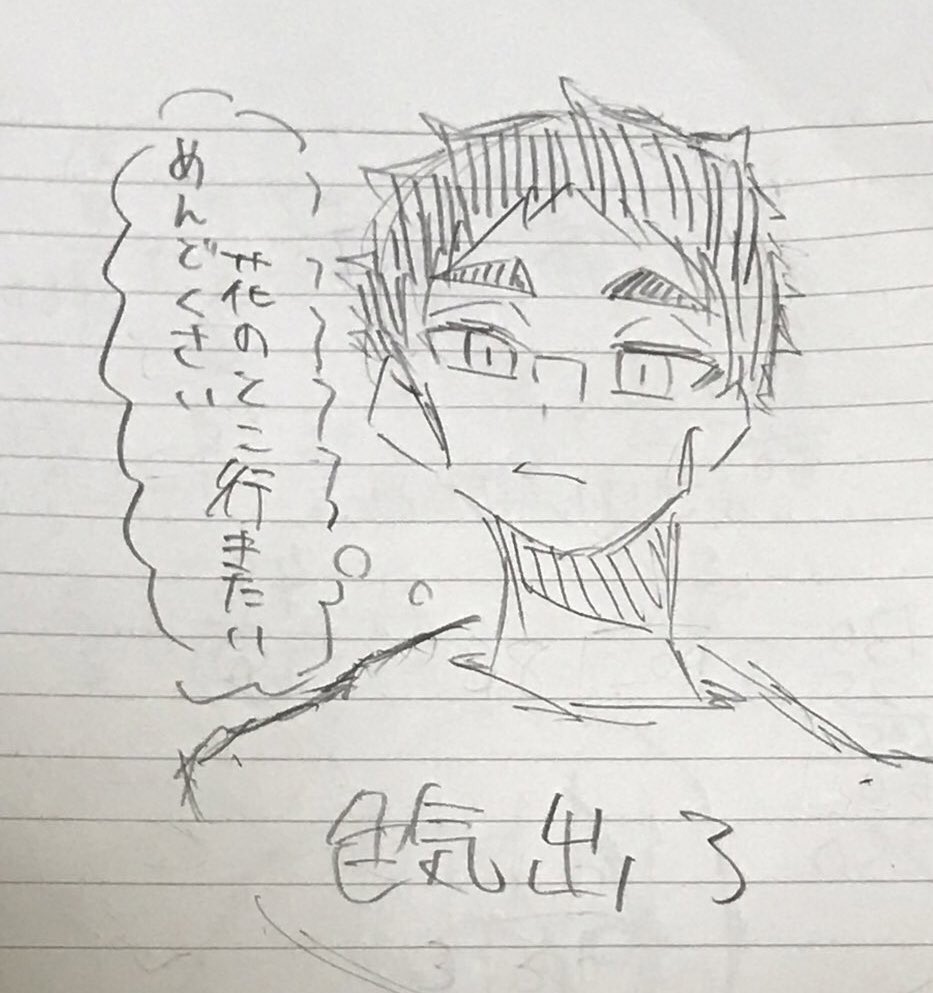 花のとこ行きたい
めんどくさい
色気出ろ